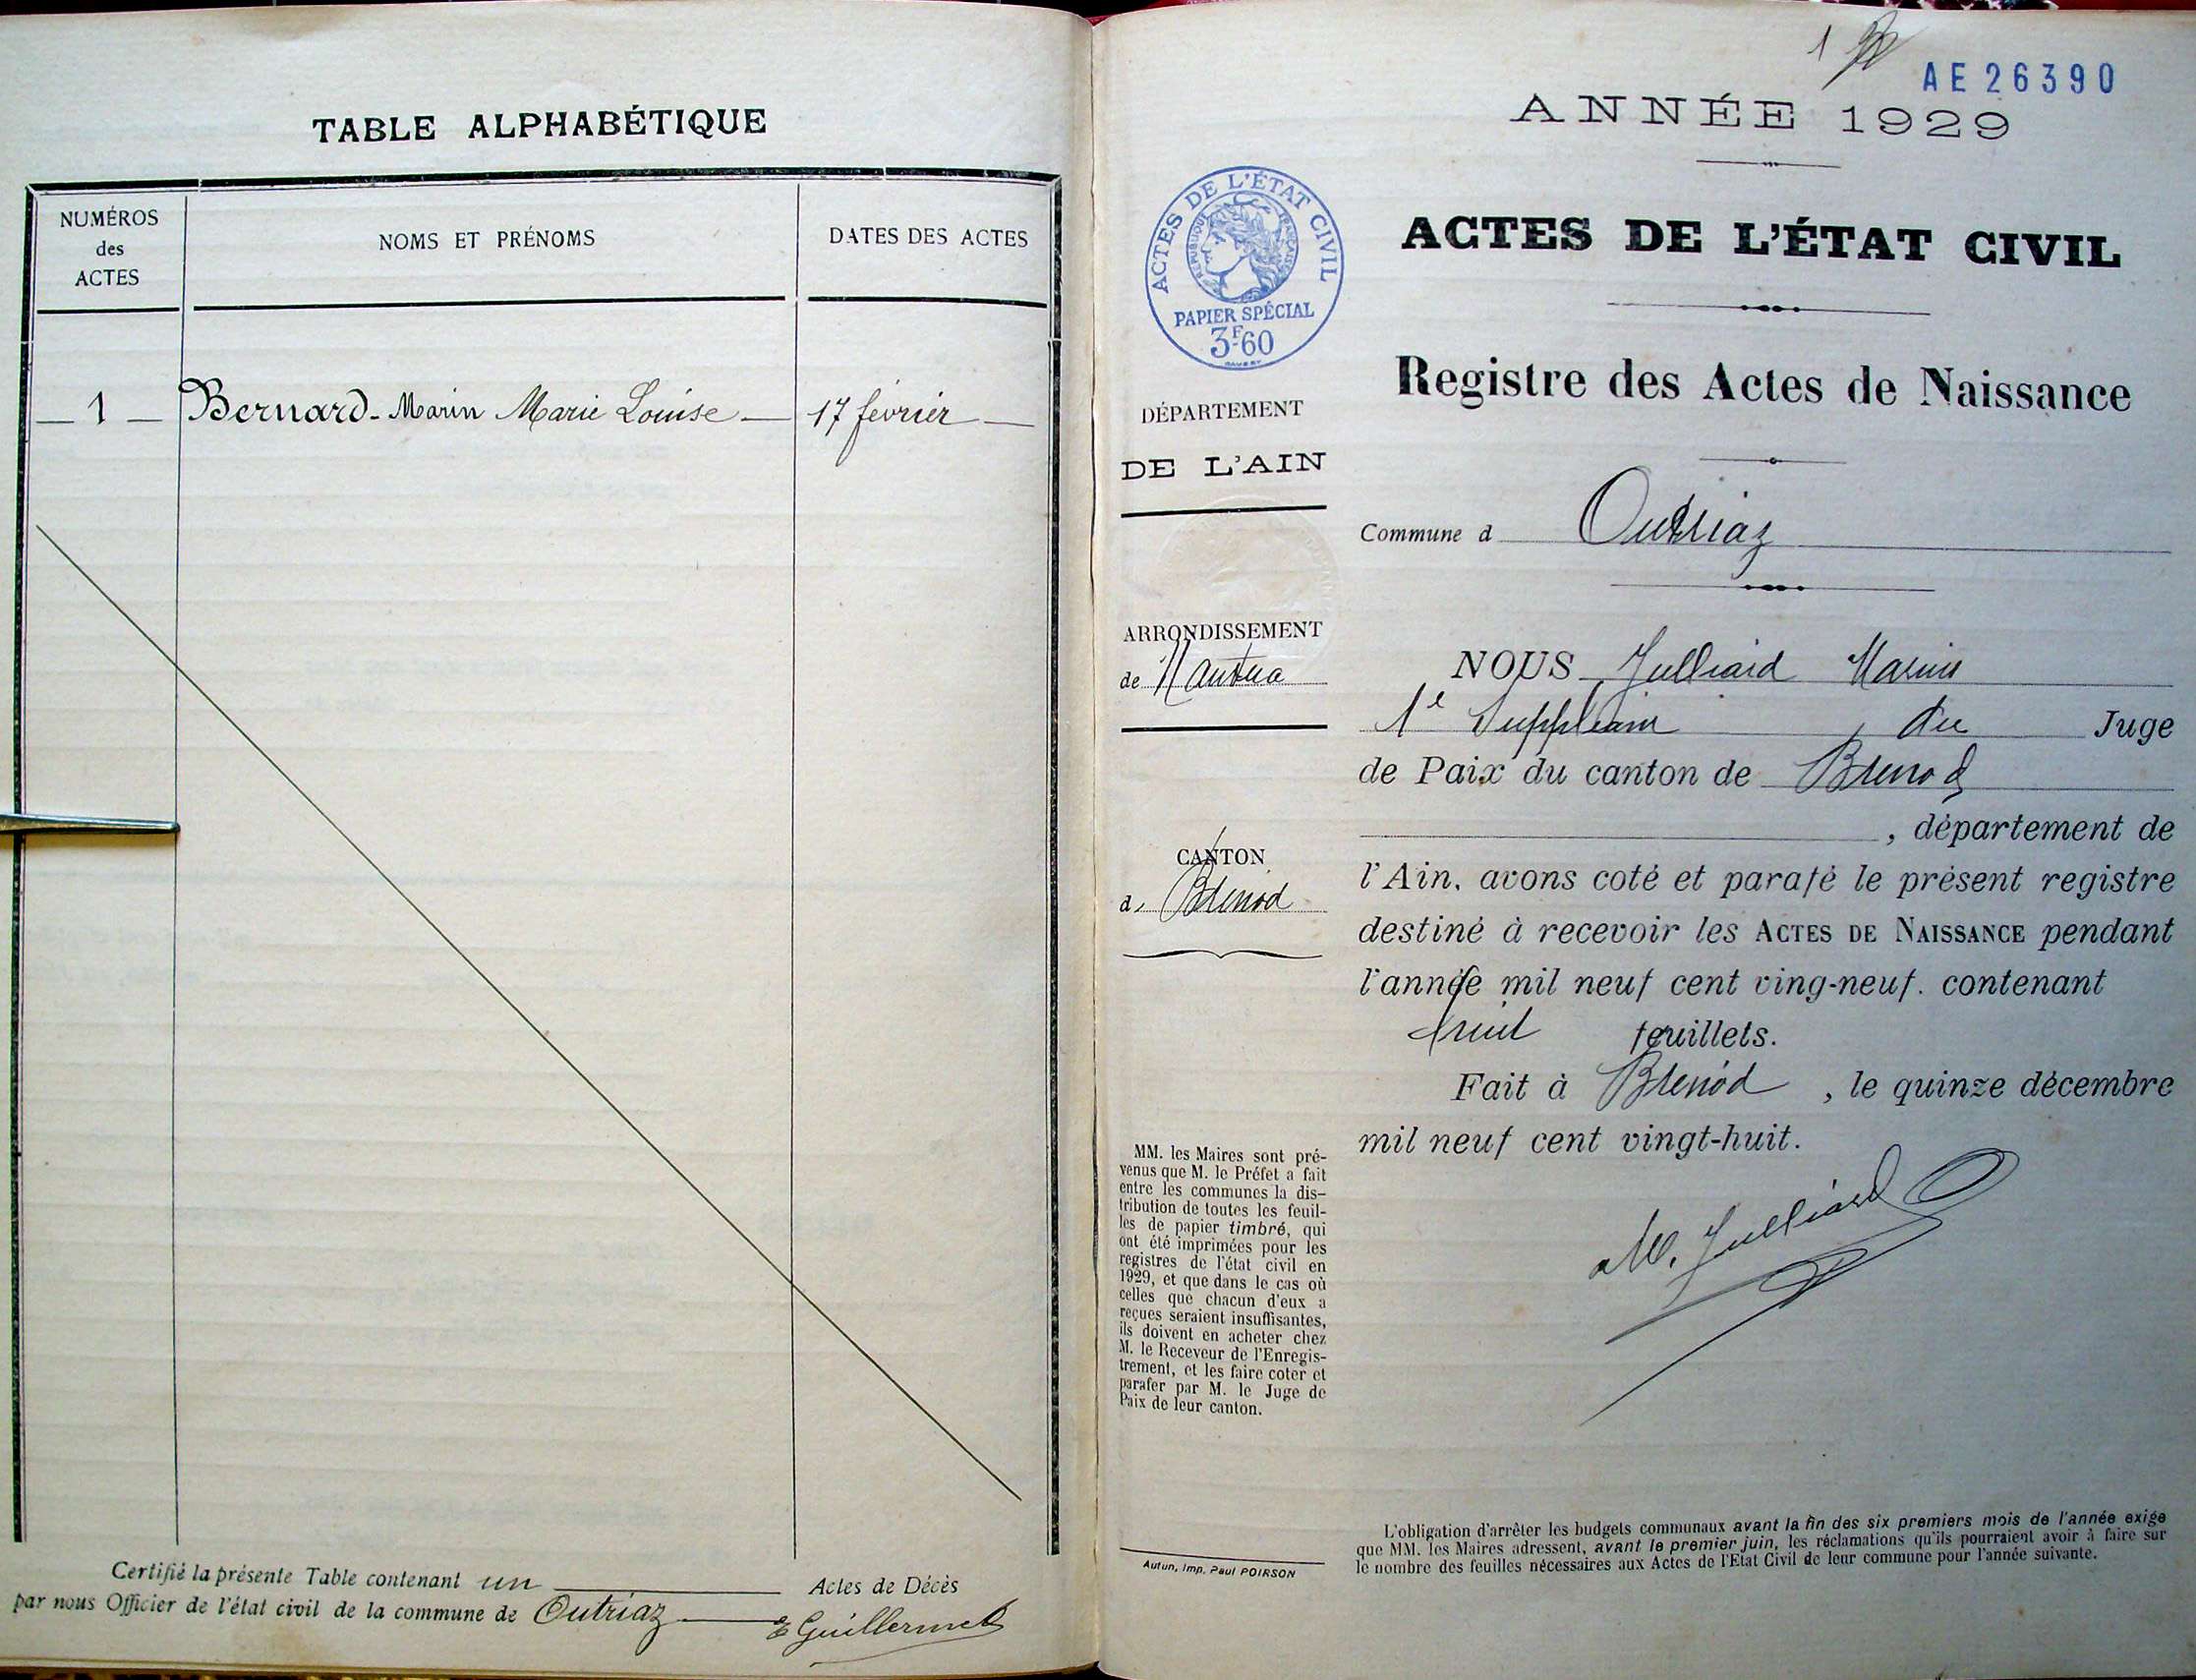 TABLE ALPHABÉTIQUE
NUMÉROS
des
ACTES
NOMS ET PRÉNOMS
DATES DES ACTES
1
Bernard-Marin Marie Louise
17 février
Certifié la présente Table contenant un
Actes de Décès
par nous Officier de l'état civil de la commune de Outriaz
E Guillermet
1
AE 26390
ANNÉE 1929
ACTES DE L'ÉTAT CIVIL
RÉPUBLIQUE FRANÇAISE
PAPIER SPÉCIAL
3F60
ACTES DE L'ÉTAT CIVIL
Registre des Actes de Naissance
DÉPARTEMENT
DE L'AIN
Commune d Outriaz
ARRONDISSEMENT
de Nantua
CANTON
d Brenod
NOUS Julliard Marius
1e Suppléant du Juge
de Paix du canton de Brenod
, département de
l'Ain, avons coté et parafé le présent registre
destiné à recevoir les ACTES DE NAISSANCE pendant
l'année mil neuf cent ving-neuf. contenant
huit feuillets.
Fait à Brenod , le quinze décembre
mil neuf cent vingt-huit.
M. Julliard
MM. les Maires sont pré-
venus que M. le Préfet a fait
entre les communes la dis-
tribution de toutes les feuil-
les de papier timbré, qui
ont été imprimées pour les
registres de l'état civil en
1929, et que dans le cas où
celles que chacun d'eux a
reçues seraient insuffisantes,
ils doivent en acheter chez
M. le Receveur de l'Enregis-
trement, et les faire coter et
parafer par M. le Juge de
Paix de leur canton.
Autun, Imp. Paul POIRSON
L'obligation d'arrêter les budgets communaux avant la fin des six premiers mois de l'année exige
que MM. les Maires adressent, avant le premier juin, les réclamations qu'ils pourraient avoir à faire sur
le nombre des feuilles nécessaires aux Actes de l'Etat Civil de leur commune pour l'année suivante.